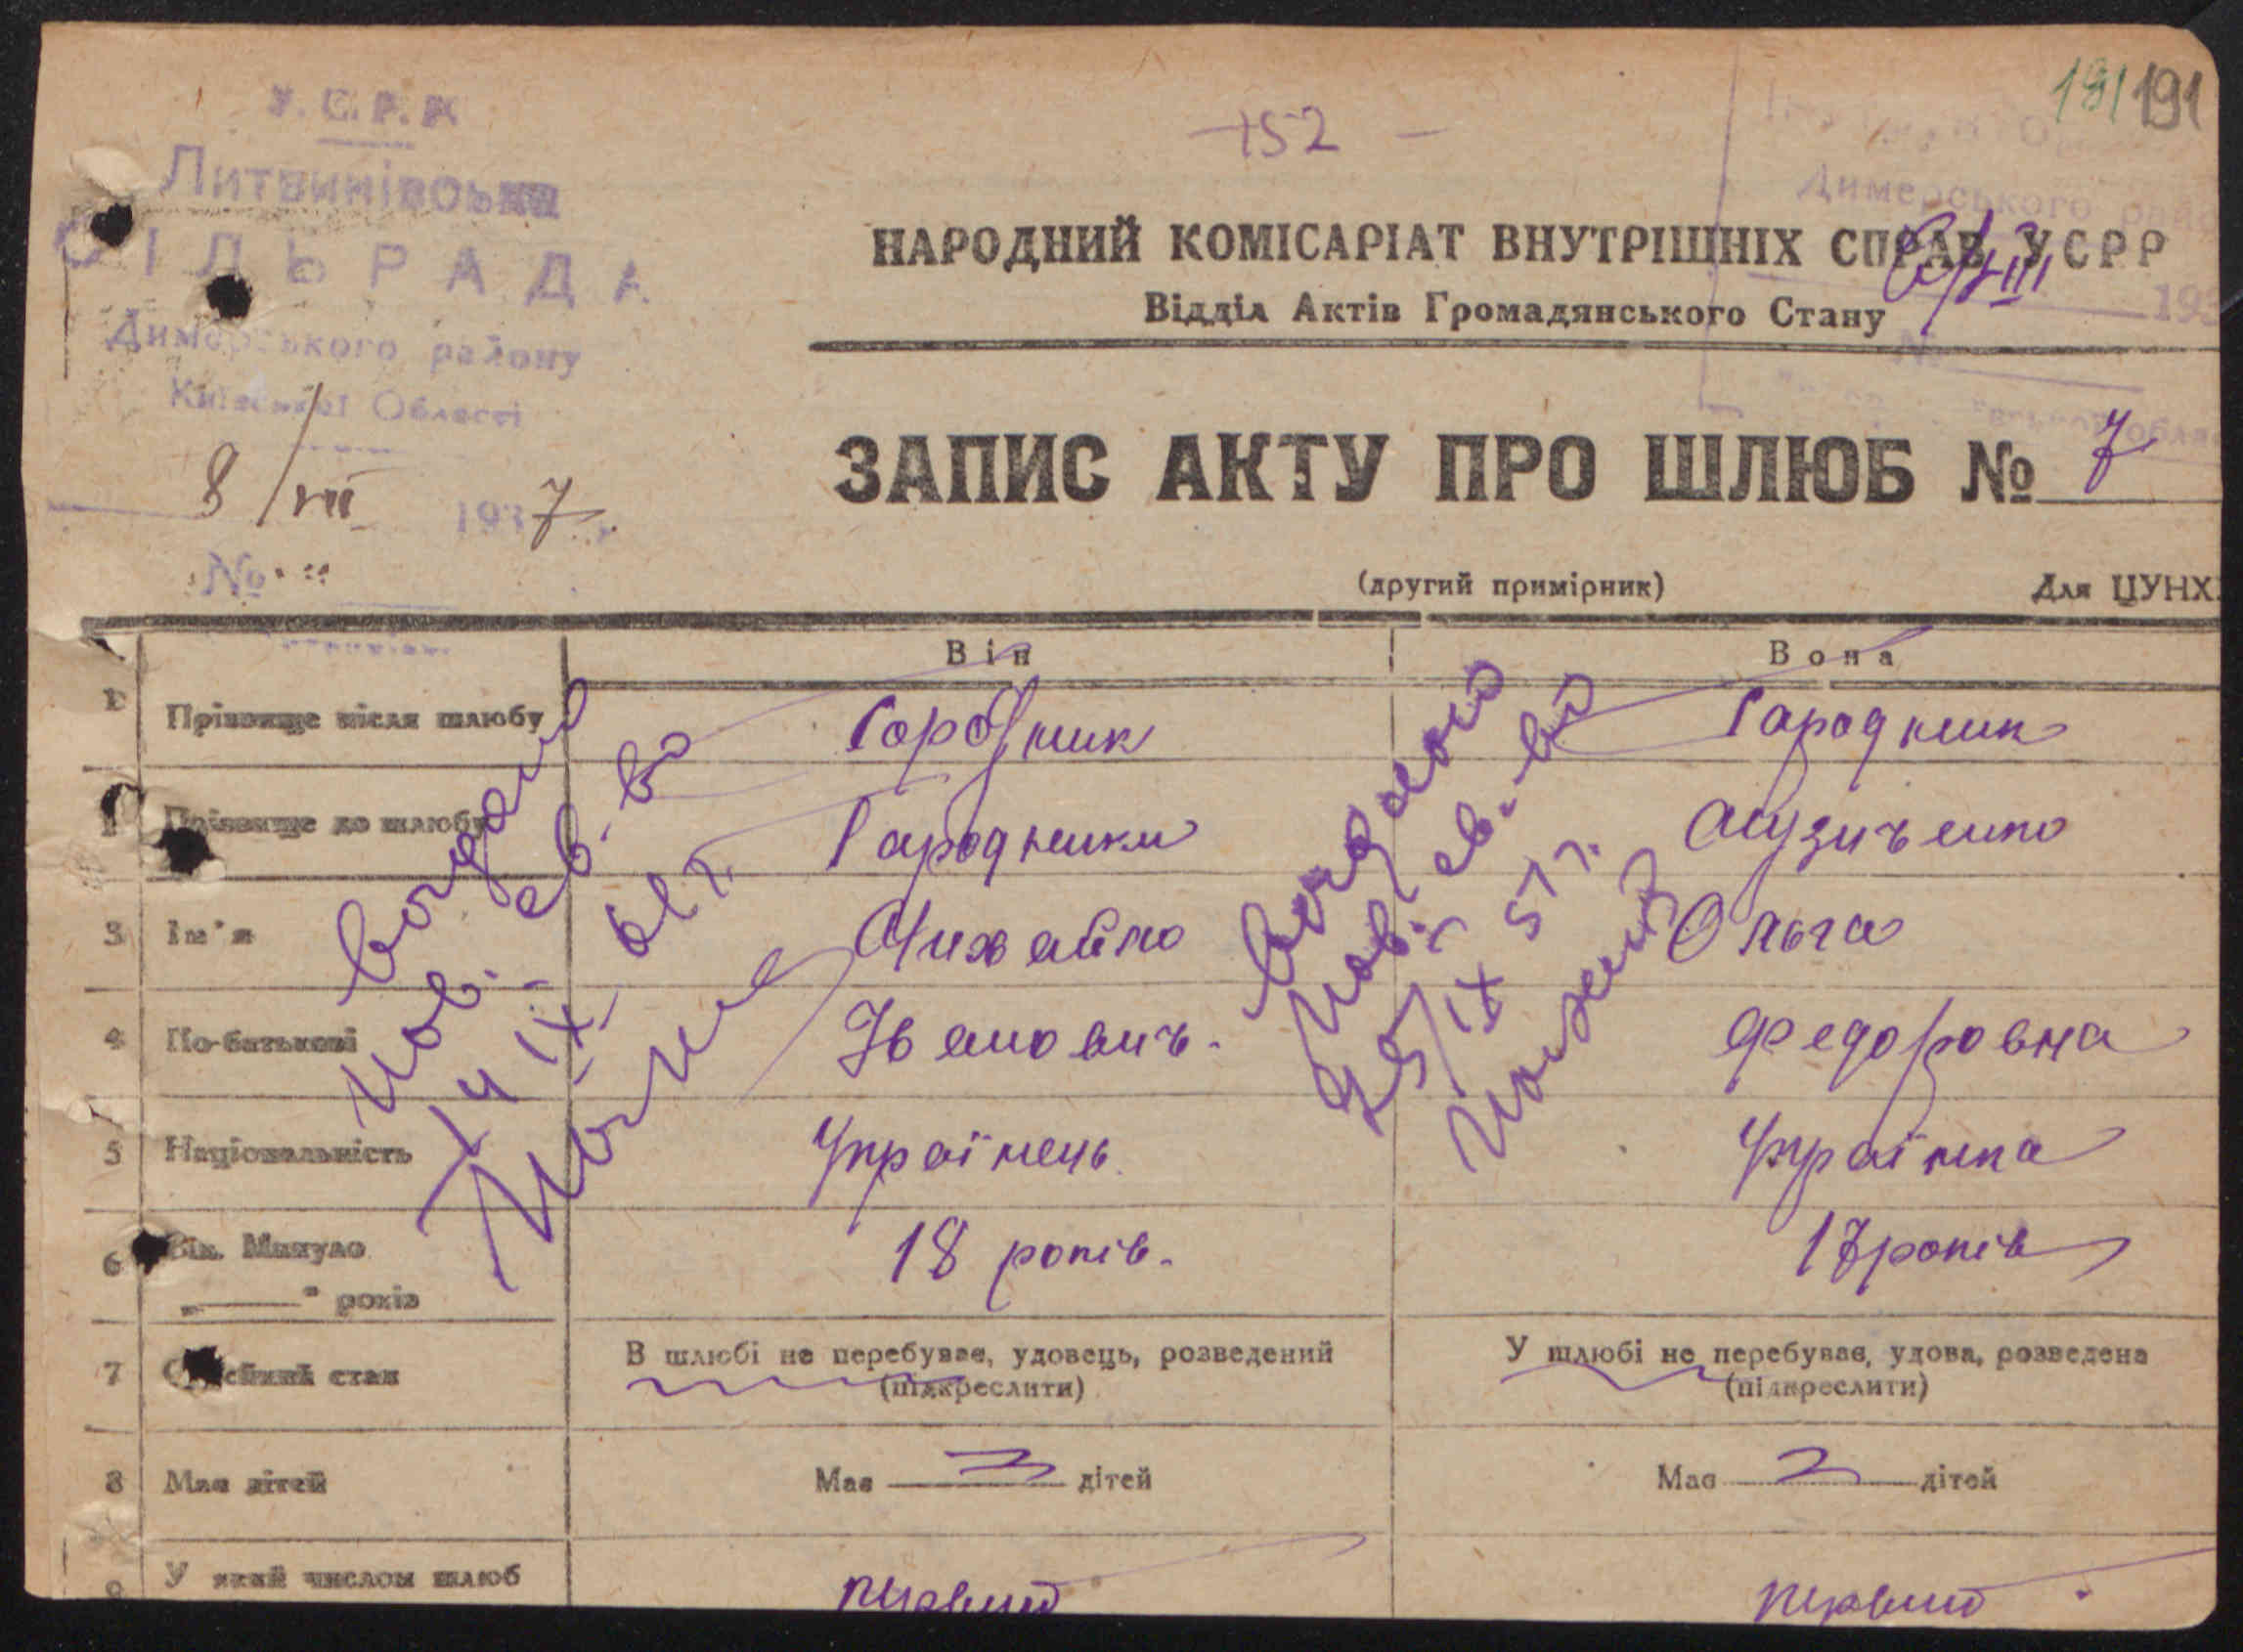 191 191
У.С.Р.Р.
152
Литвинівська
СІЛЬРАДА
Димерського району
Київської Області
8/VII 1937 р.
№
Димерського
193
№
НАРОДНИЙ КОМІСАРІАТ ВНУТРІШНІХ СПРАВ УСРР
Відділ Актів Громадянського Стану
ЗАПИС АКТУ ПРО ШЛЮБ № 7
(другий примірник) Для ЦУНХ
Він Вона
1 Прізвище після шлюбу Городник Городник
2 Прізвище до шлюбу Городник Музиченко
3 Ім'я Михайло Ольга
4 По-батькові Іванович. Федоровна
5 Національність Українець Українка
6 Вік. Минуло 18 років. 17 років
„——" років
7 Сімейний стан В шлюбі не перебуває, удовець, розведений У шлюбі не перебуває, удова, розведена
(підкреслити) (підкреслити)
8 Має дітей Має дітей Має дітей
9 У який числом шлюб первий первий
Выдано
пов. св-во
14 IX 61 г.
Выдано
пов. св-во
25/IX 57 г.